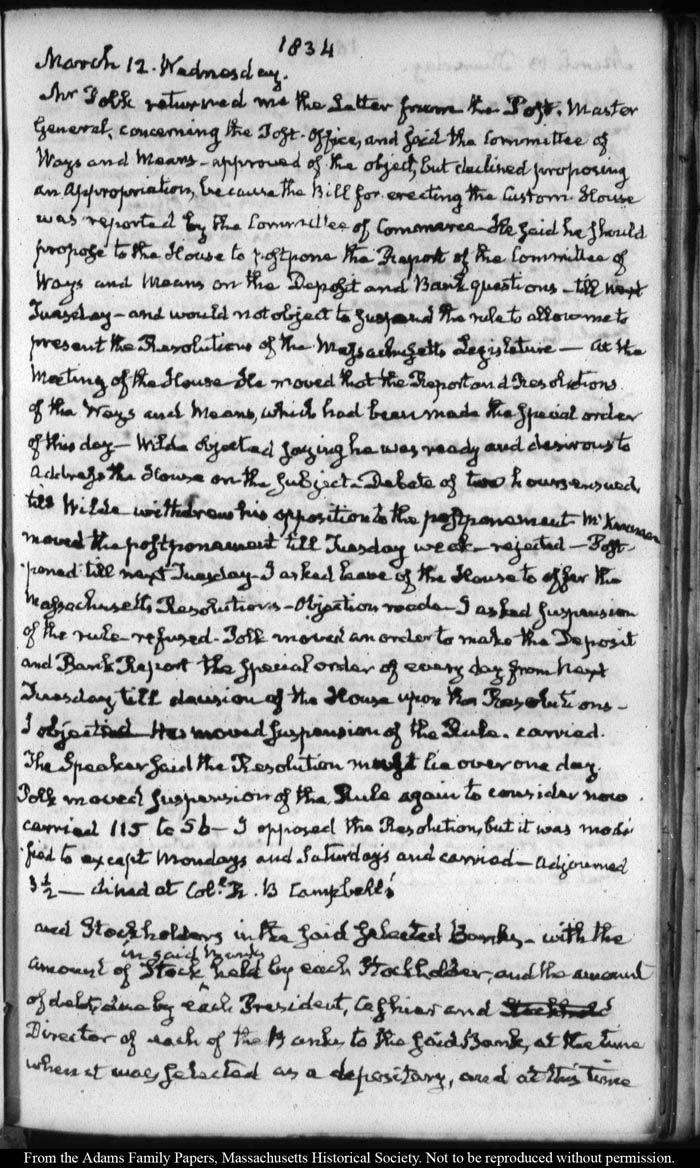 1834
March 12. Wednesday.
Mr Polk returned me the Letter from the Post. Master
General, concerning the Post-Office, and said the Committee of
Ways and Means—approved of the object, but declined proposing
an appropriation, because the Bill for erecting the Custom House
was reported by the Committee of Commerce—He said he should
propose to the House to postpone the Report of the Committee of
Ways and Means on the Deposit and Bank questions—till next
Tuesday—and would not object to suspend the rule to allow me to
present the Resolutions of the Massachusetts Legislature—At the
Meeting of the House He moved that the Report and Resolutions
of the Ways and Means, which had been made the special order
of this day—Wilde objected saying he was ready and desirous to
address the House on the subject—Debate of two hours ensued,
till Wilde withdrew his opposition to the postponement. McKennan
moved the postponement till Tuesday week—rejected—Post-
poned till next Tuesday—I asked leave of the House to offer the
Massachusetts Resolutions—Objection made—I asked suspension
of the rule—refused—Polk moved an order to make the Deposit
and Bank Report the special order of every day from next
Tuesday till decision of the House upon the Resolutions—
I objected—He moved suspension of the Rule. carried.
The Speaker said the Resolution must lie over one day.
Polk moved suspension of the Rule again to consider now
carried 115 to 56—I opposed the Resolution, but it was modi
fied to except Mondays and Saturdays and carried—Adjourned
3 1/2—dined at Coll. R. B Campbell's
and Stockholders in the said selected Banks—with the
in said Banks
amount of Stock held by each Stockholder, and the amount
of debt, due by each President, Cashier and Stockhold
Director of each of the Banks to the said Bank, at the time
when it was selected as a depositary, and at this time
From the Adams Family Papers, Massachusetts Historical Society. Not to be reproduced without permission.